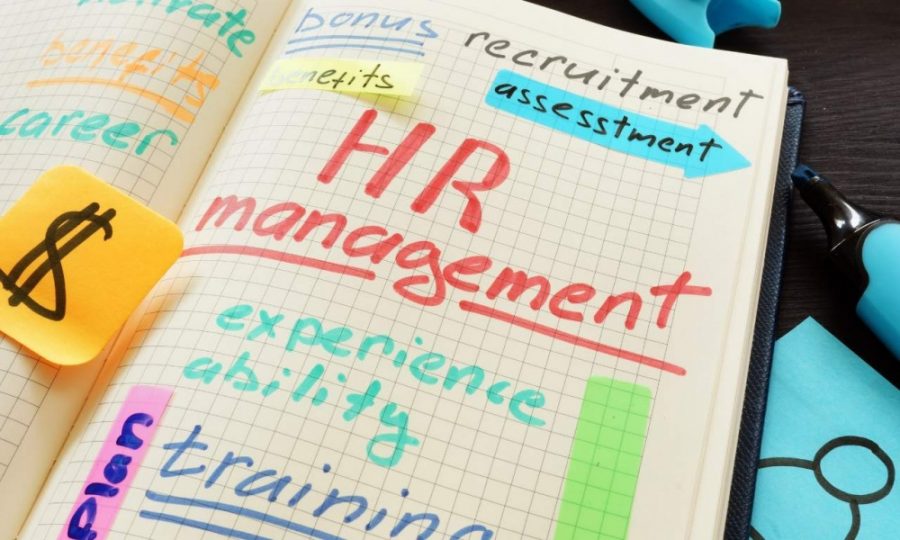 motivate
benefits
career
$
bonus
benefits
recruitment
assesstment
HR
management
experience
ability
plan
training